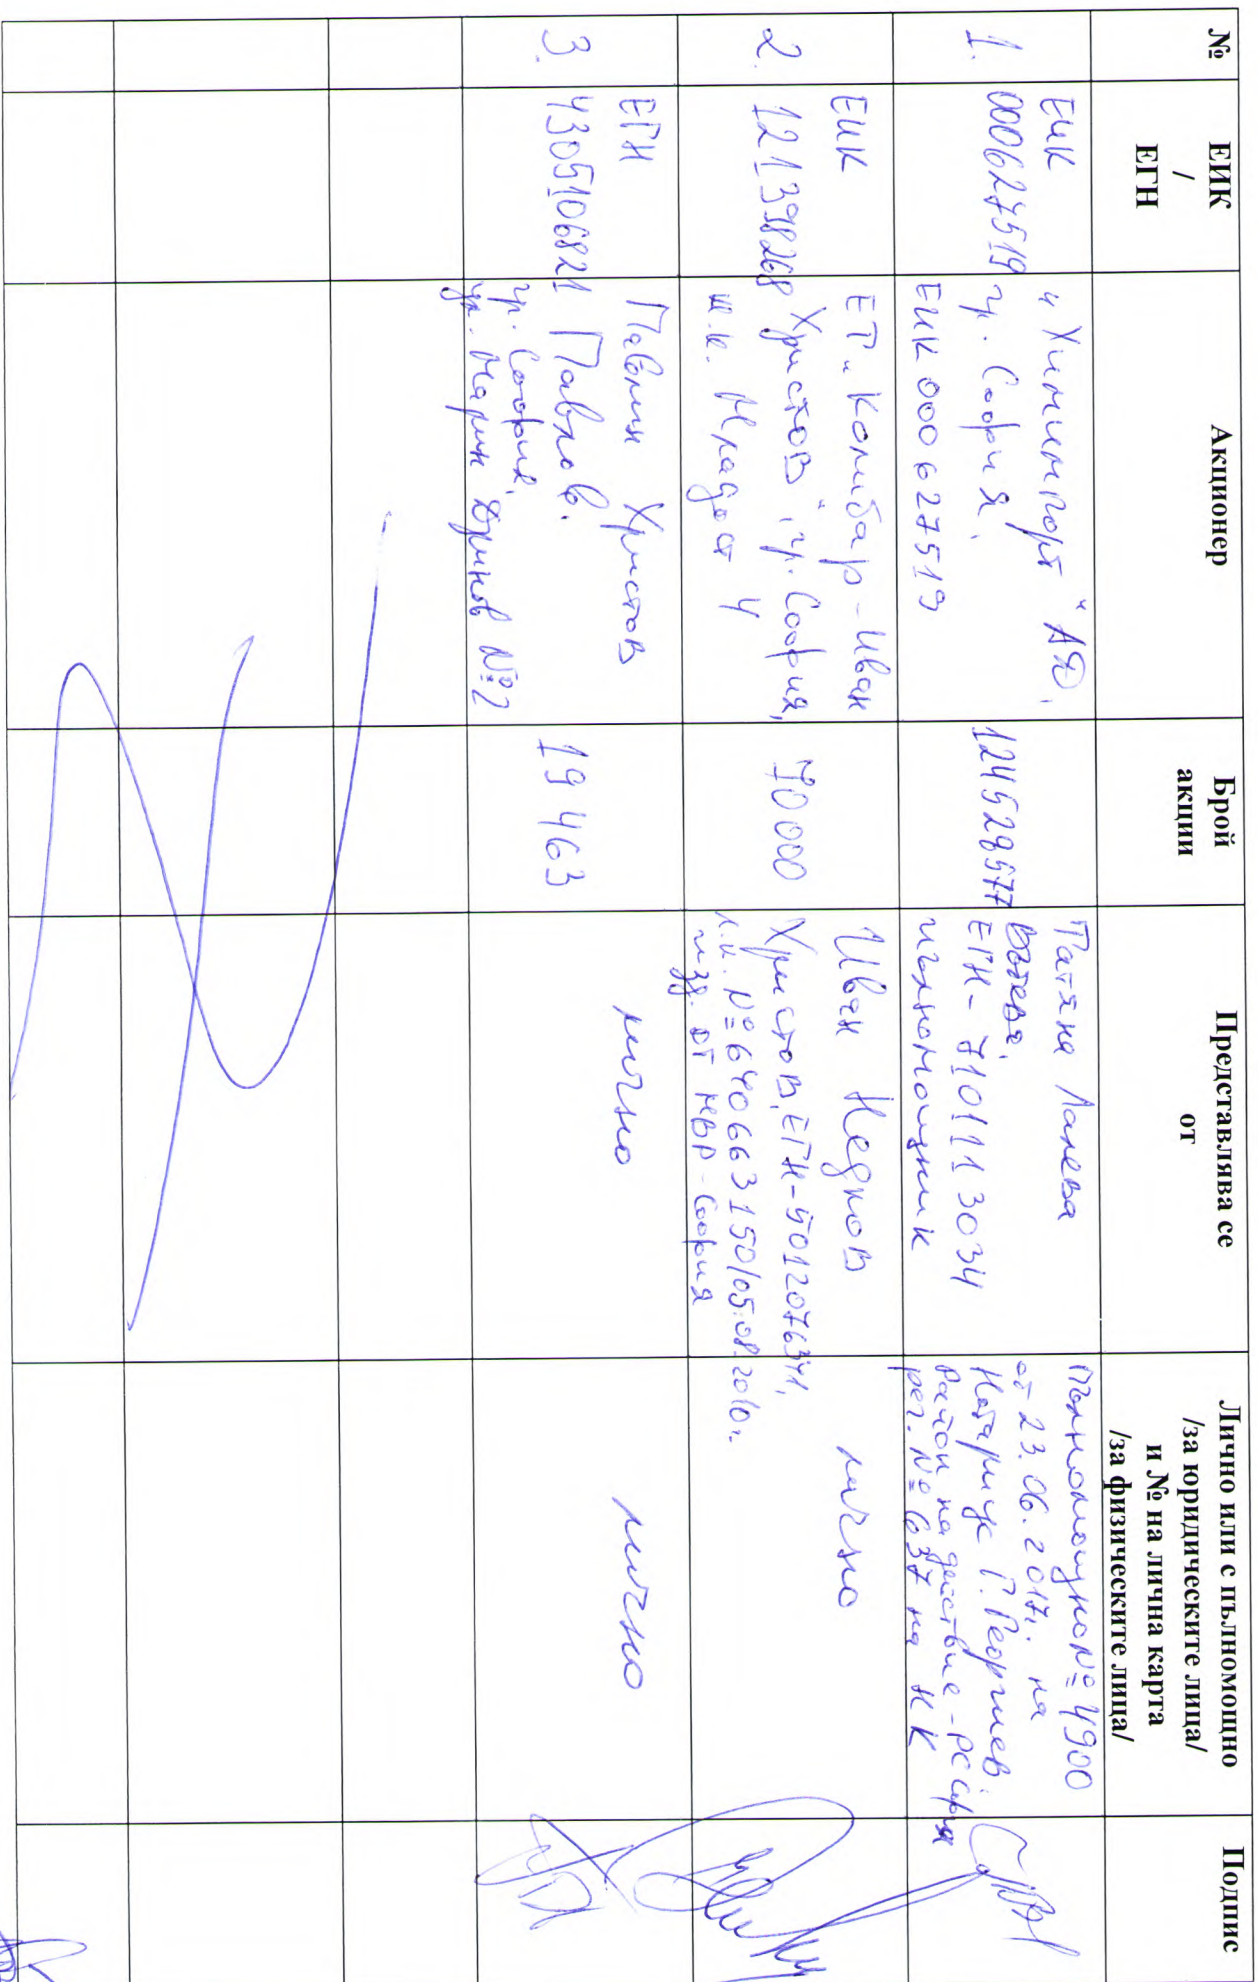 №
ЕИК
/
ЕГН
Акционер
Брой
акции
Представлява се
от
Лично или с пълномощно
/за юридическите лица/
и № на лична карта
/за физическите лица/
Подпис
1.
ЕИК
000627519
"Химимпорт" АД,
гр. София,
ЕИК 000627519
124528577
Татяна Лалева
ЕГН- 7101113034
пълномощник
Пълномощно № 4900
от 23.06.2017г. на
Нотариус Г. Георгиев,
район на действие - РС София
рег. № 637 на НК
2.
ЕИК
121398268
ЕТ "Колибар - Иван
Христов", гр. София,
ж.к. Младост 4
70000
Иван Недков
Христов, ЕГН-5012076341,
л.к. № 640663150/05.08.2010г.
изд. от МВР - София
лично
3.
ЕГН
4305106821
Павлин Христов
Павлов.
гр. София,
ул. Марин Дринов № 2
19 463
лично
лично